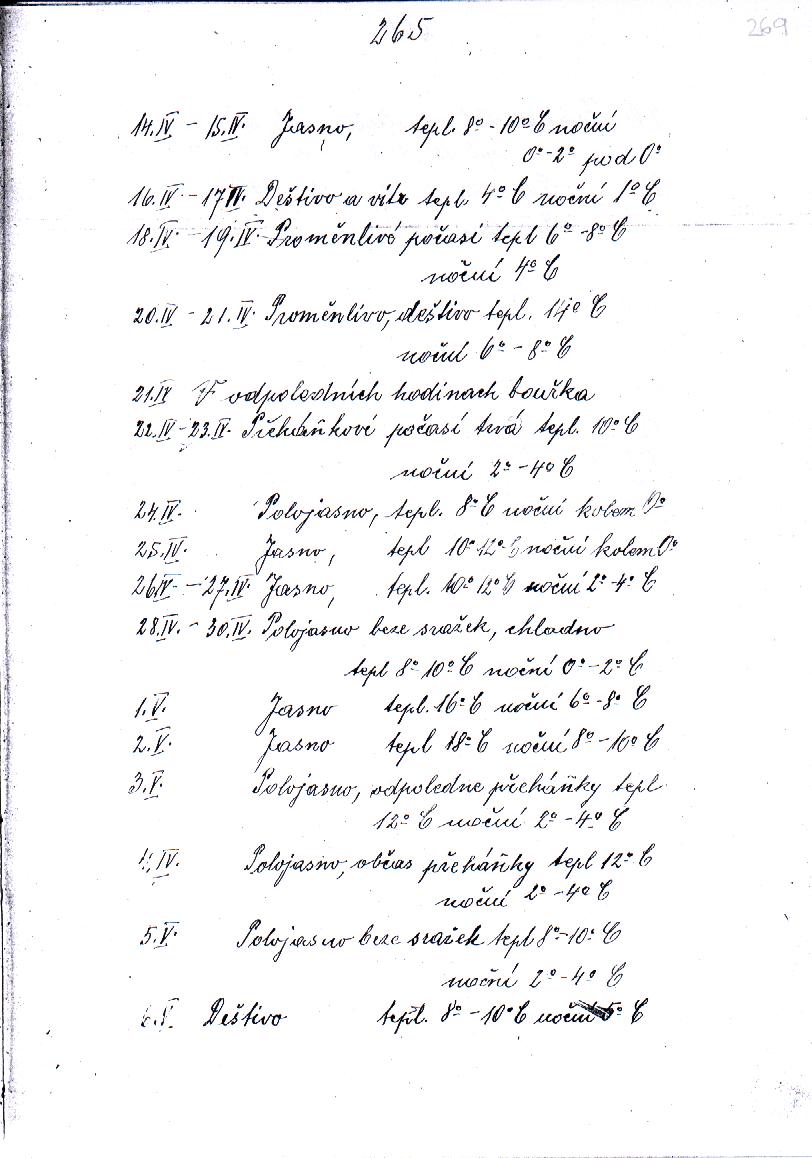 265
269
14.IV – 15.IV. Jasno, tepl. 8° - 10° C noční
0° - 2° pod 0°
16.IV. – 17.IV. Deštivo a vítr tepl 4° C noční 1° C
18.IV. – 19.IV. Proměnlivé počasí tepl 6° - 8° C
noční 4° C
20.IV – 21.IV Proměnlivo, deštivo tepl. 14° C
noční 6° - 8° C
21.IV V odpoledních hodinach bouřka
22.IV – 23.IV. Přeháňkové počasí trvá tepl. 10° C
noční 2° - 4° C
24.IV. Polojasno, tepl. 8° C noční kolem 0°
25.IV. Jasno, tepl 10° 12° C noční kolem 0°
26.IV – 27.IV. Jasno, tepl. 10° 12° C noční 2° - 4° C
28.IV. – 30.IV. Polojasno beze srážek, chladno
tepl 8° 10° C noční 0° - 2° C
1.V. Jasno tepl. 16° C noční 6° - 8° C
2.V. Jasno tepl 18° C noční 8° - 10° C
3.V. Polojasno, odpoledne přeháňky tepl
12° C noční 2° - 4° C
4.IV. Polojasno, občas přeháňky tepl 12° C
noční 2° - 4° C
5.V. Polojasno beze srážek tepl 8° - 10° C
noční 2° - 4° C
6.V. Deštivo tepl. 8° - 10° C noční 5° C